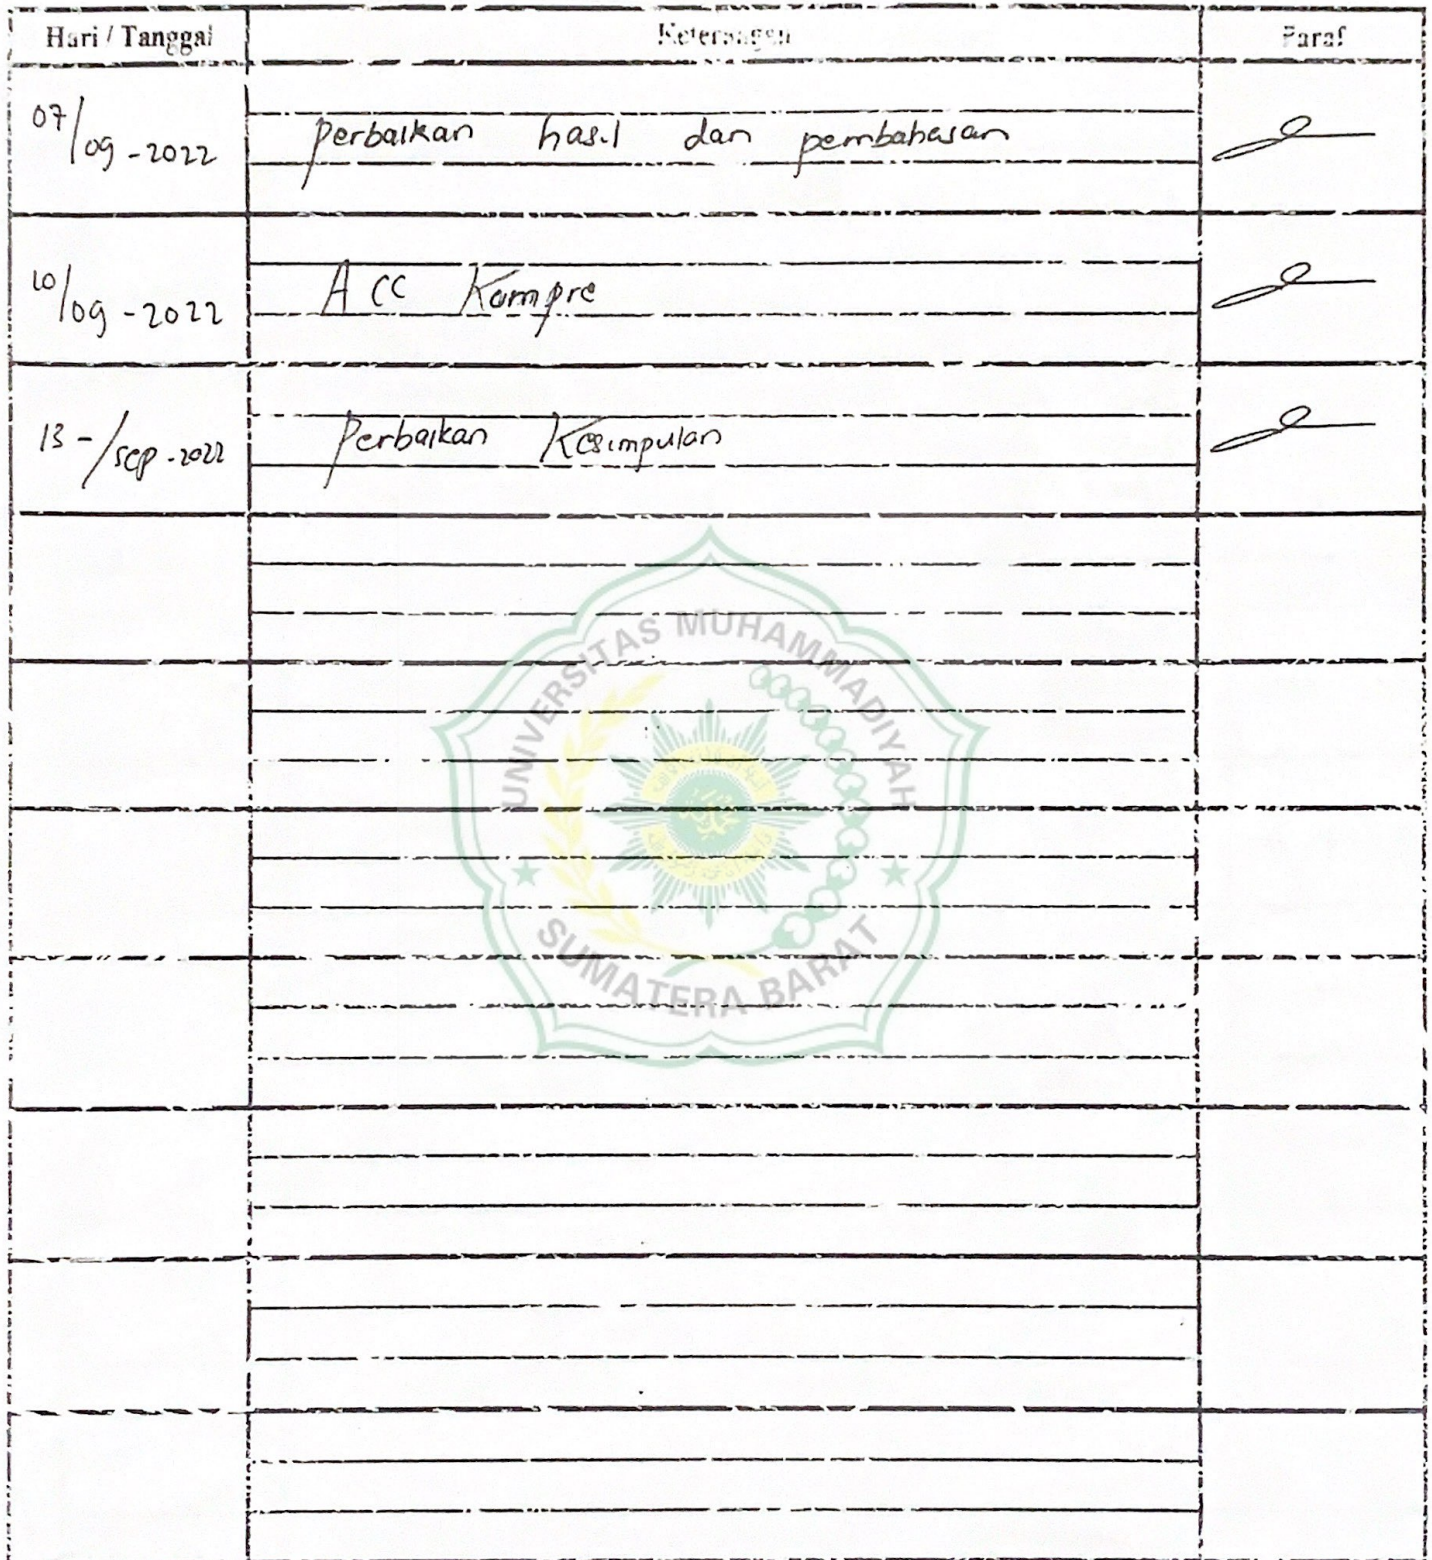 Hari / Tanggal Keterangan Paraf
07/09-2022 Perbaikan hasil dan pembahasan
10/09-2022 Acc Kompre
13-/sep-2022 Perbaikan Kesimpulan
UNIVERSITAS MUHAMMADIYAH
SUMATERA BARAT